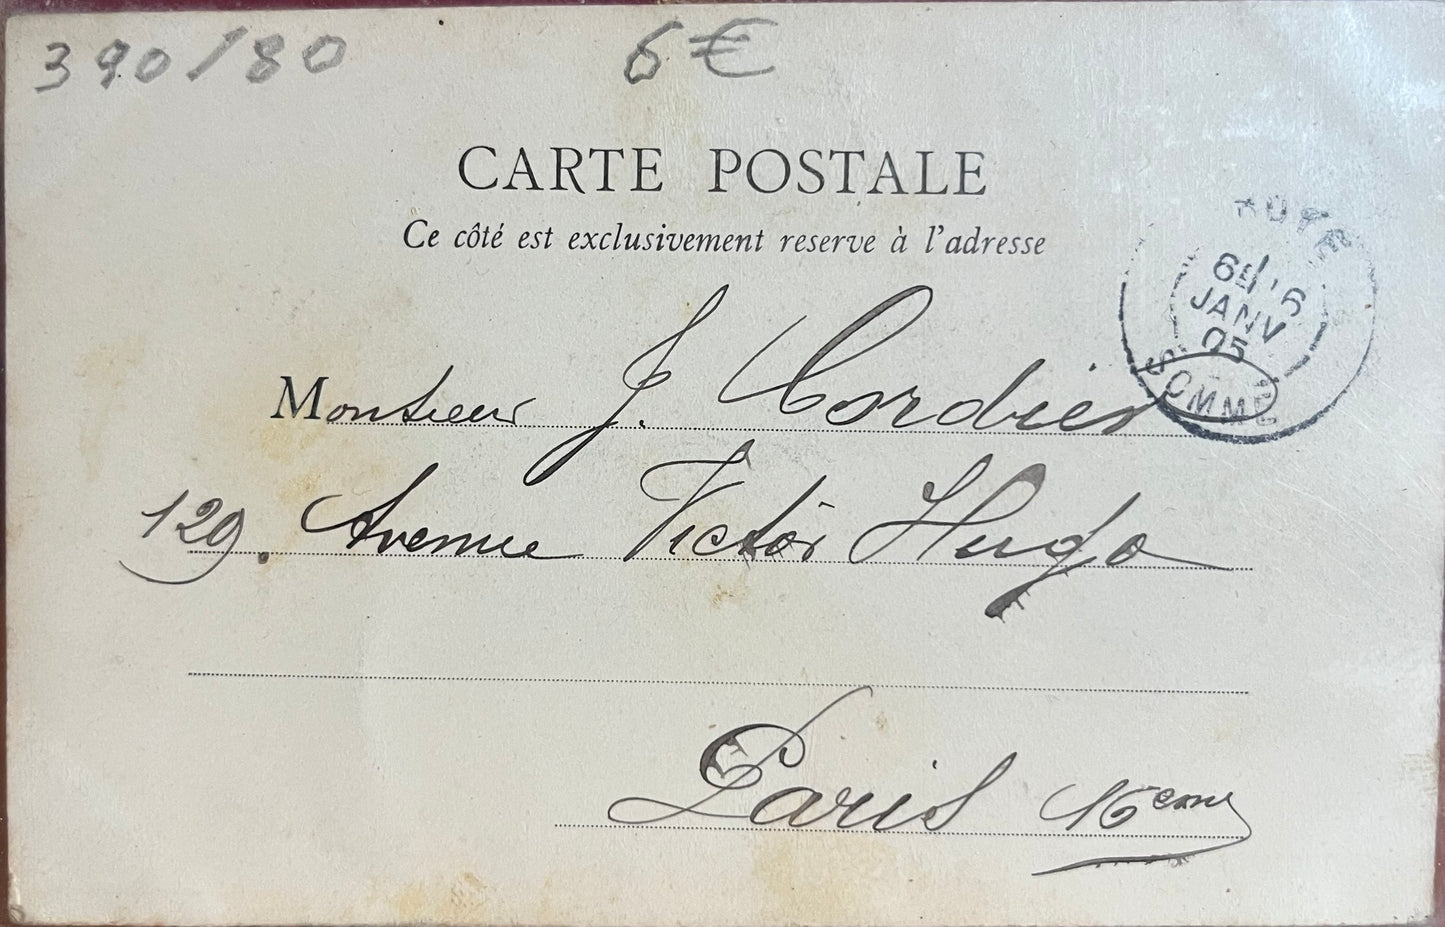 390/80 6€
CARTE POSTALE
Ce côté est exclusivement reserve à l'adresse
ROYE
6
JANV
05
SOMME
Monsieur J. Cordier
129. Avenue Victor Hugo
Paris 16eme